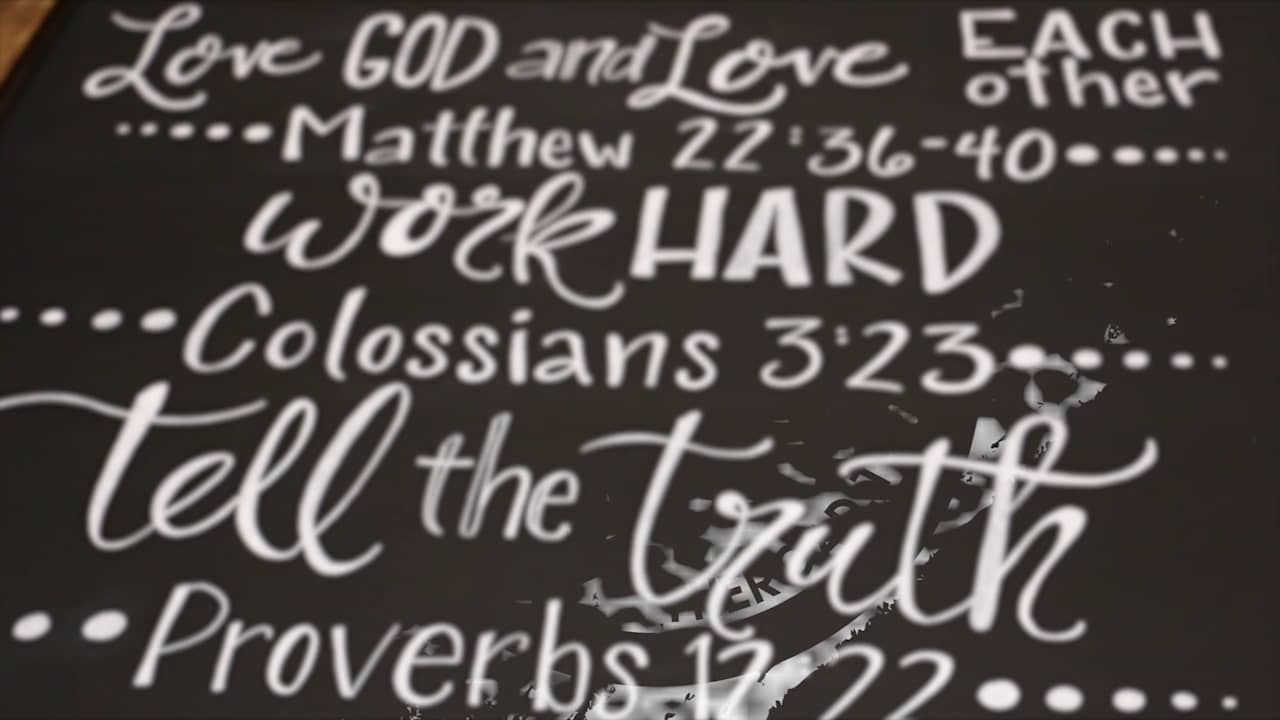 Love GOD and Love EACH other
Matthew 22:36-40
work HARD
Colossians 3:23
tell the truth
Proverbs 12:22